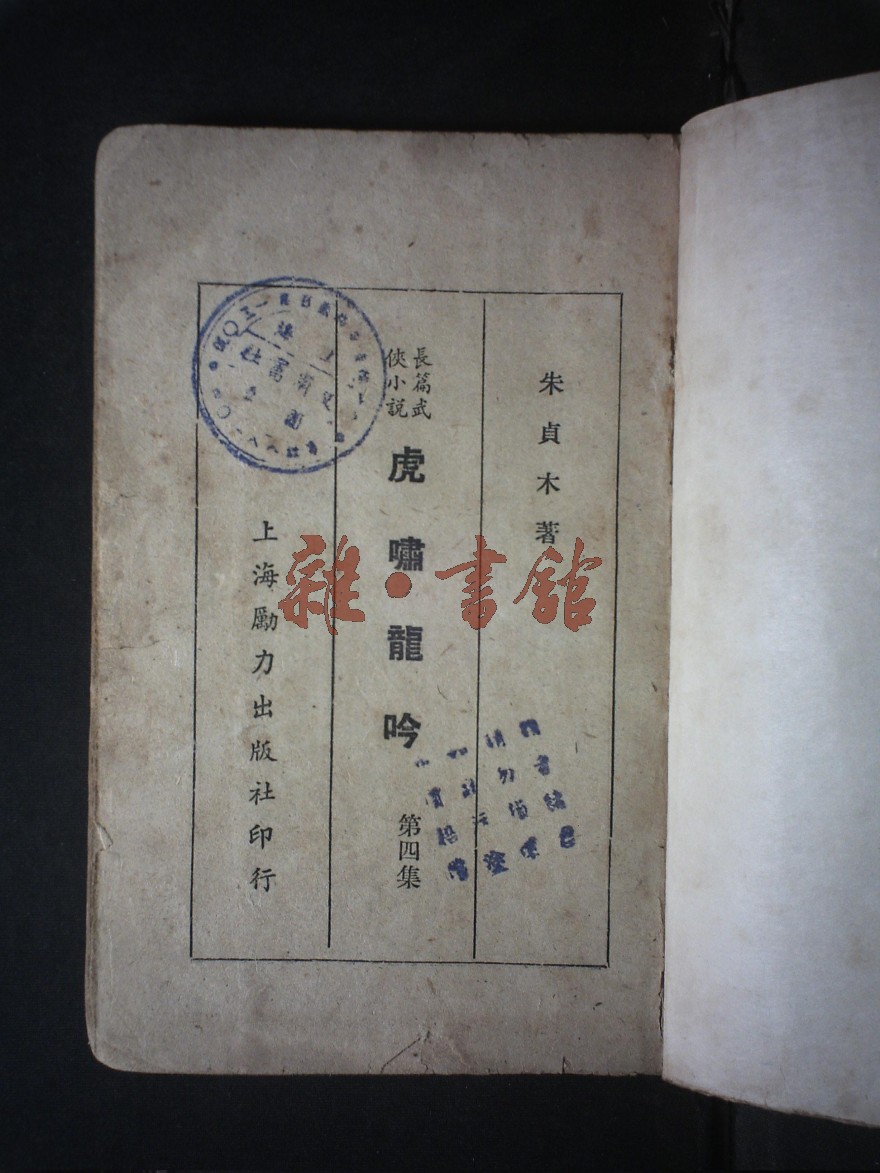 朱貞木著
長篇武
俠小說
虎嘯龍吟
第四集
上海勵力出版社印行
雜·書館